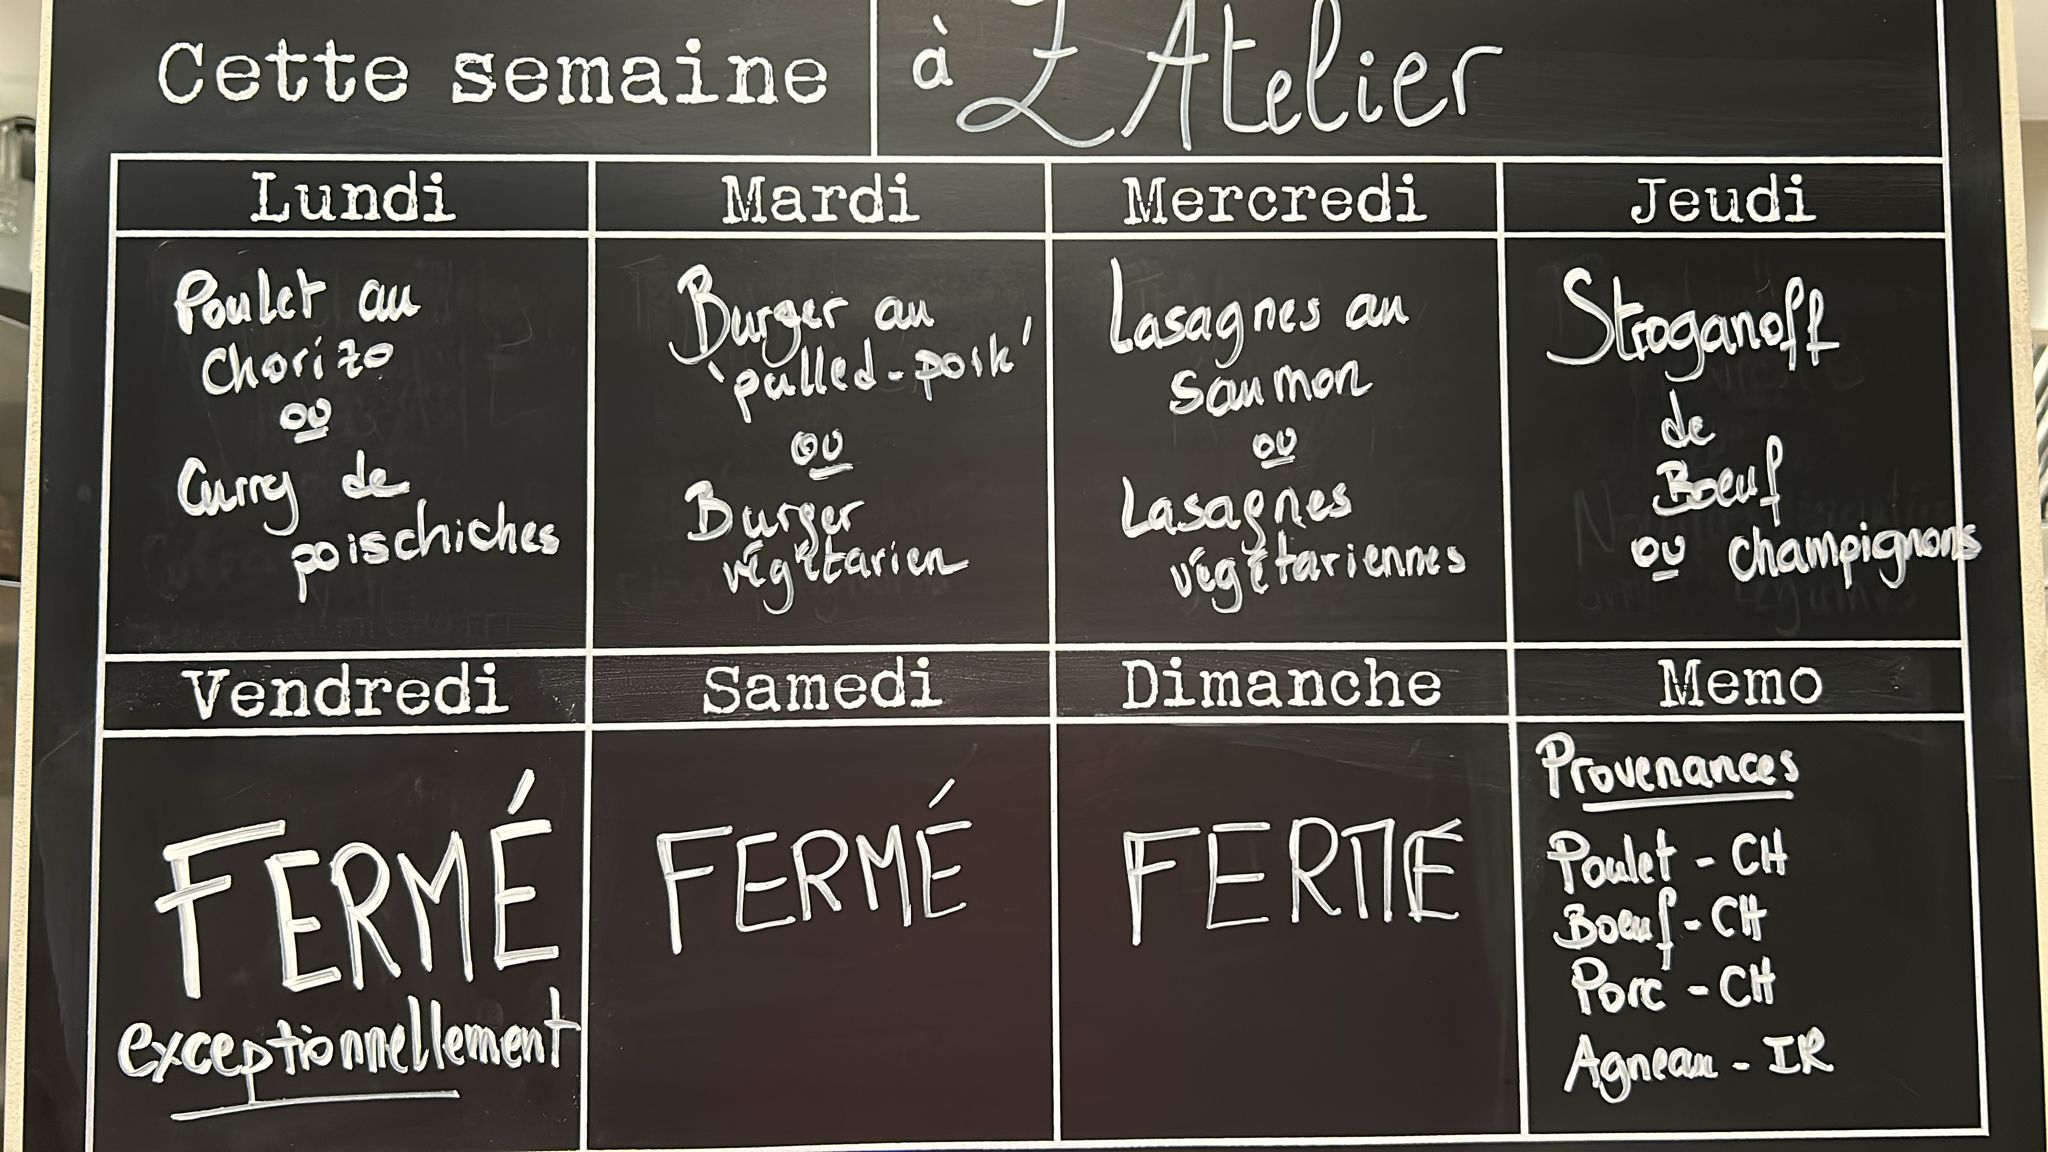 Cette semaine à L'Atelier
Lundi
Poulet au
chorizo
ou
Curry de
poischiches
Mardi
Burger au
'pulled-pork'
ou
Burger
végétarien
Mercredi
Lasagnes au
saumon
ou
Lasagnes
végétariennes
Jeudi
Stroganoff
de
Boeuf
ou champignons
Vendredi
FERMÉ
exceptionnellement
Samedi
FERMÉ
Dimanche
FERMÉ
Memo
Provenances
Poulet - CH
Boeuf - CH
Porc - CH
Agneau - IR